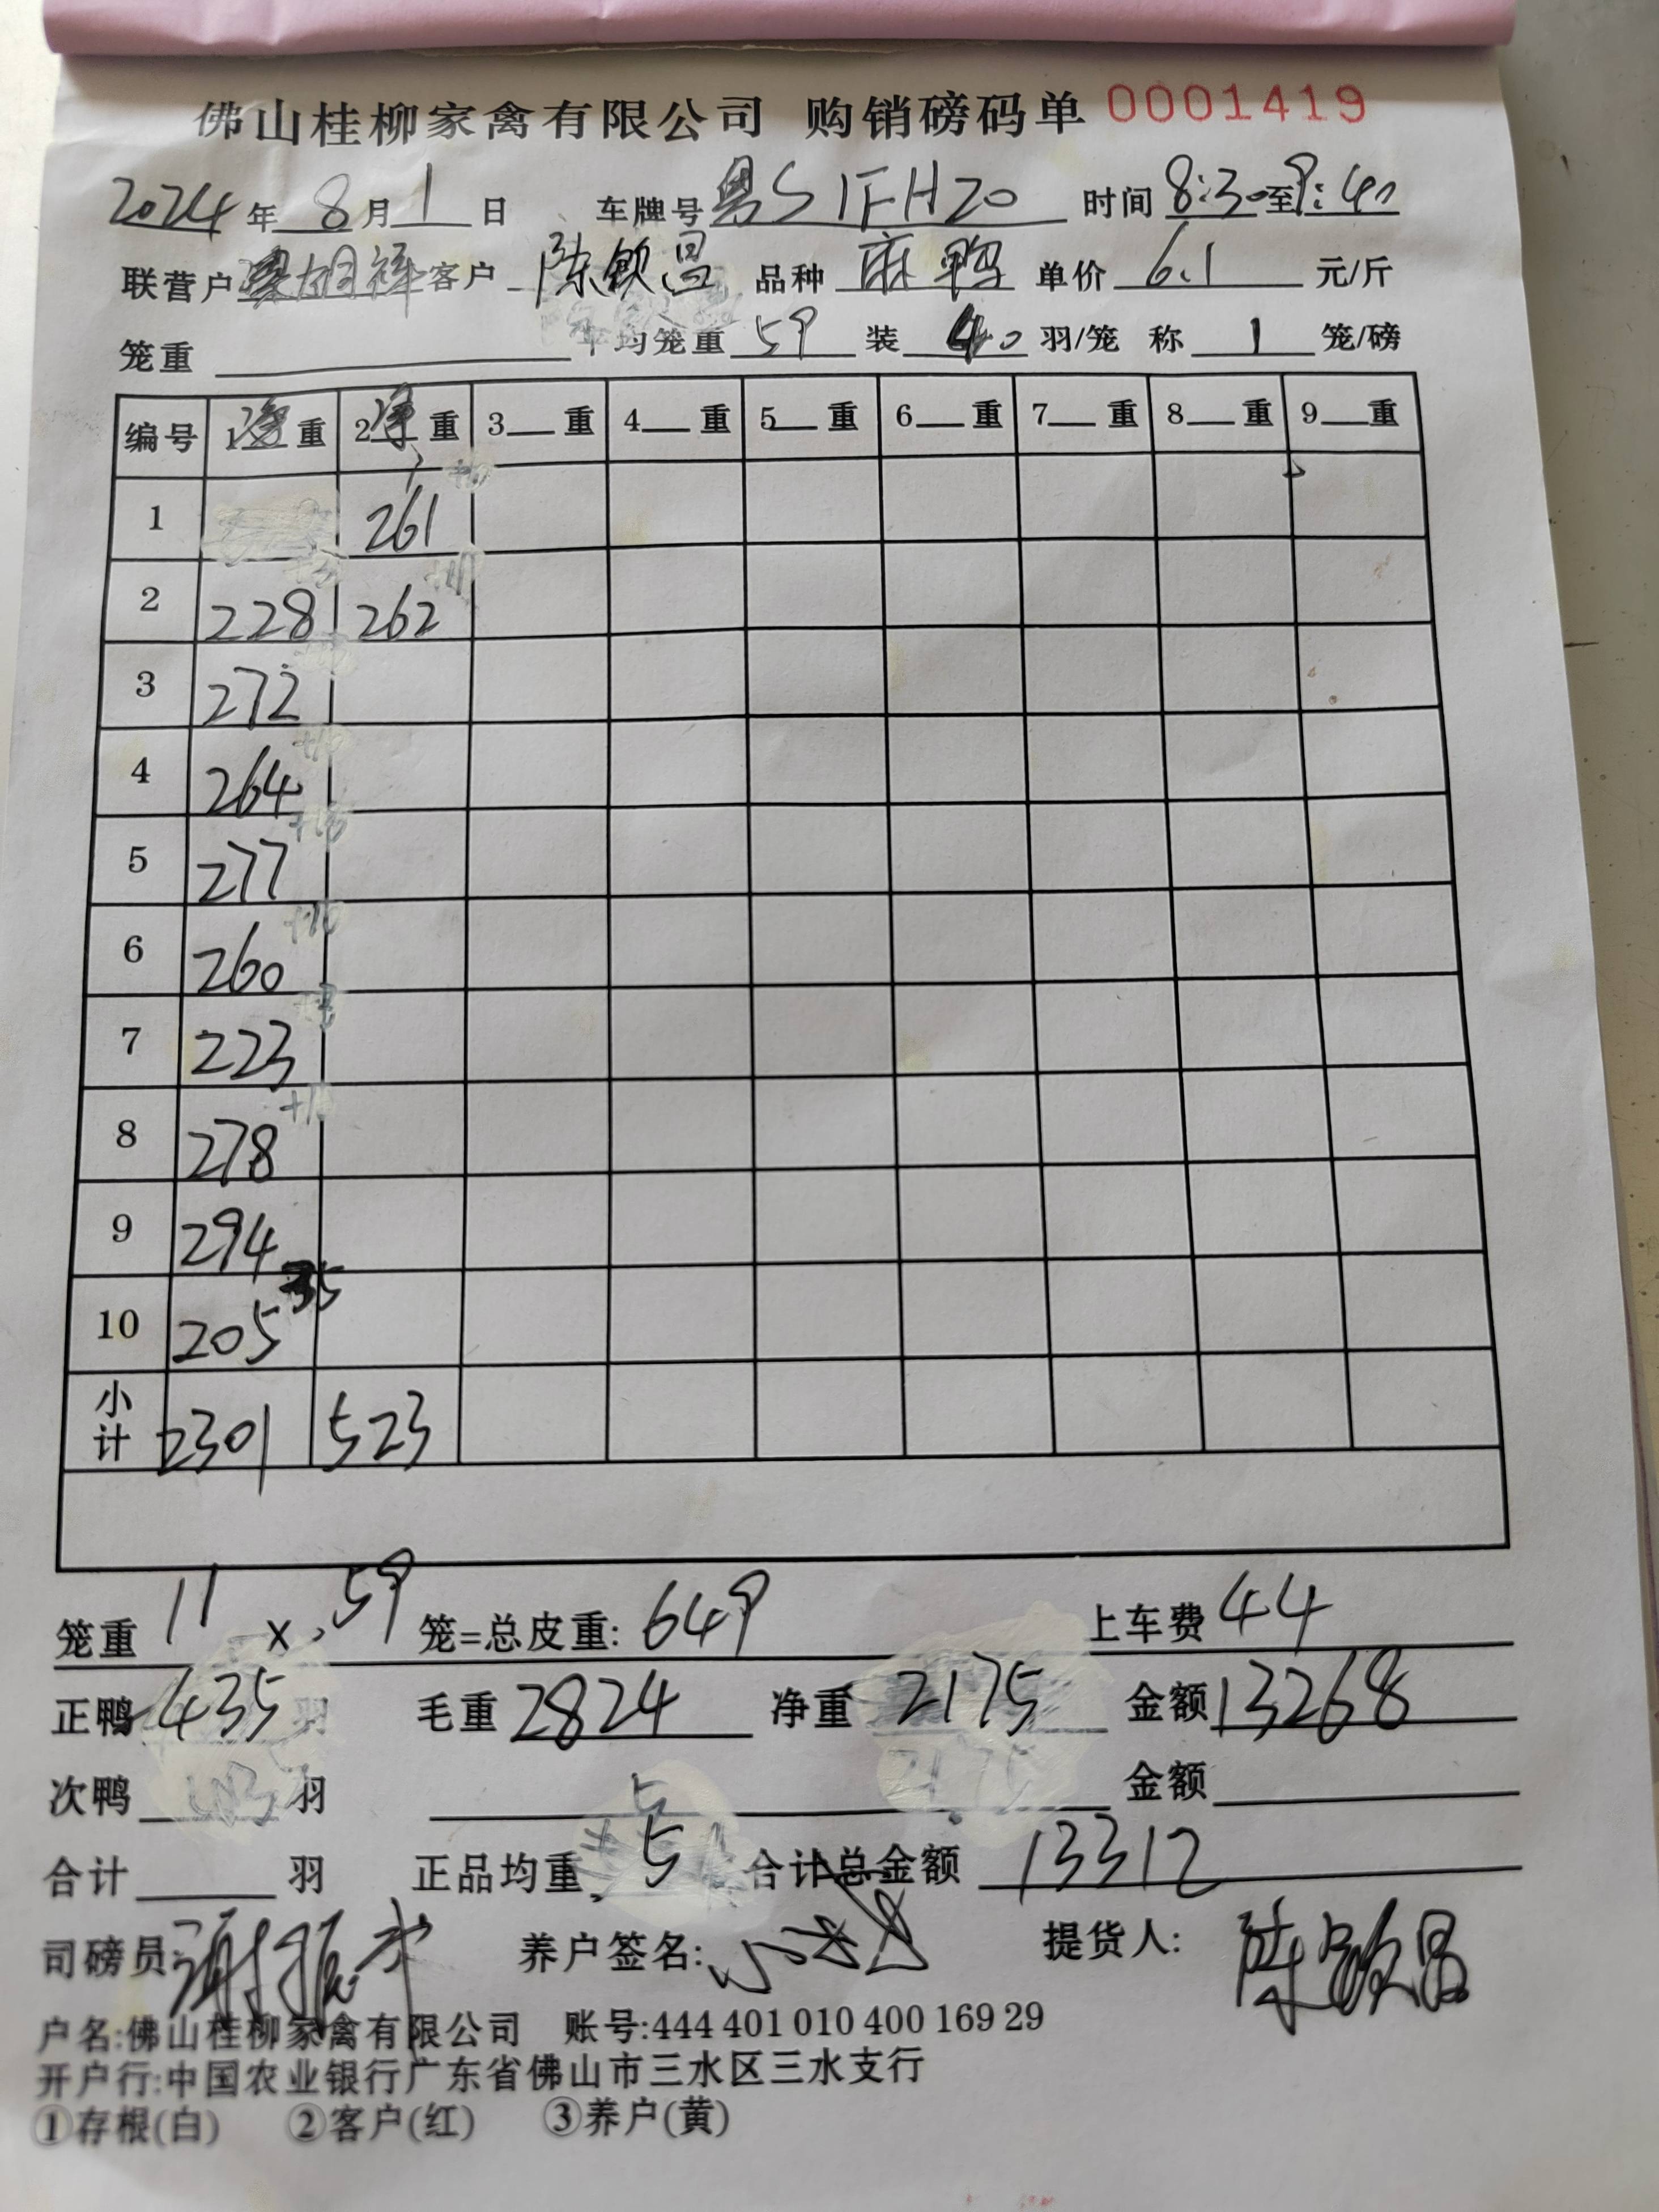 佛山桂柳家禽有限公司 购销磅码单 0001419
2024年 8月1日 车牌号粤S1FH20 时间8:30至9:40
联营户 客户 陈钦昌 品种 麻鸭 单价 6.1 元/斤
笼重 均笼重 59 装 40 羽/笼 称 1 笼/磅
编号 1 重 2净重 3 重 4 重 5 重 6 重 7 重 8 重 9 重
1 261
2 228 262
3 272
4 264
5 277
6 260
7 223
8 278
9 294
10 205 35
小计 2301 523
笼重 11 × 59 笼=总皮重: 649 上车费 44
正鸭 435 羽 毛重 2824 净重 2175 金额 13268
次鸭 羽 金额
合计 羽 正品均重 5 合计总金额 13312
司磅员: 养户签名: 提货人: 陈钦昌
户名:佛山桂柳家禽有限公司 账号:444 401 010 400 169 29
开户行:中国农业银行广东省佛山市三水区三水支行
①存根(白) ②客户(红) ③养户(黄)